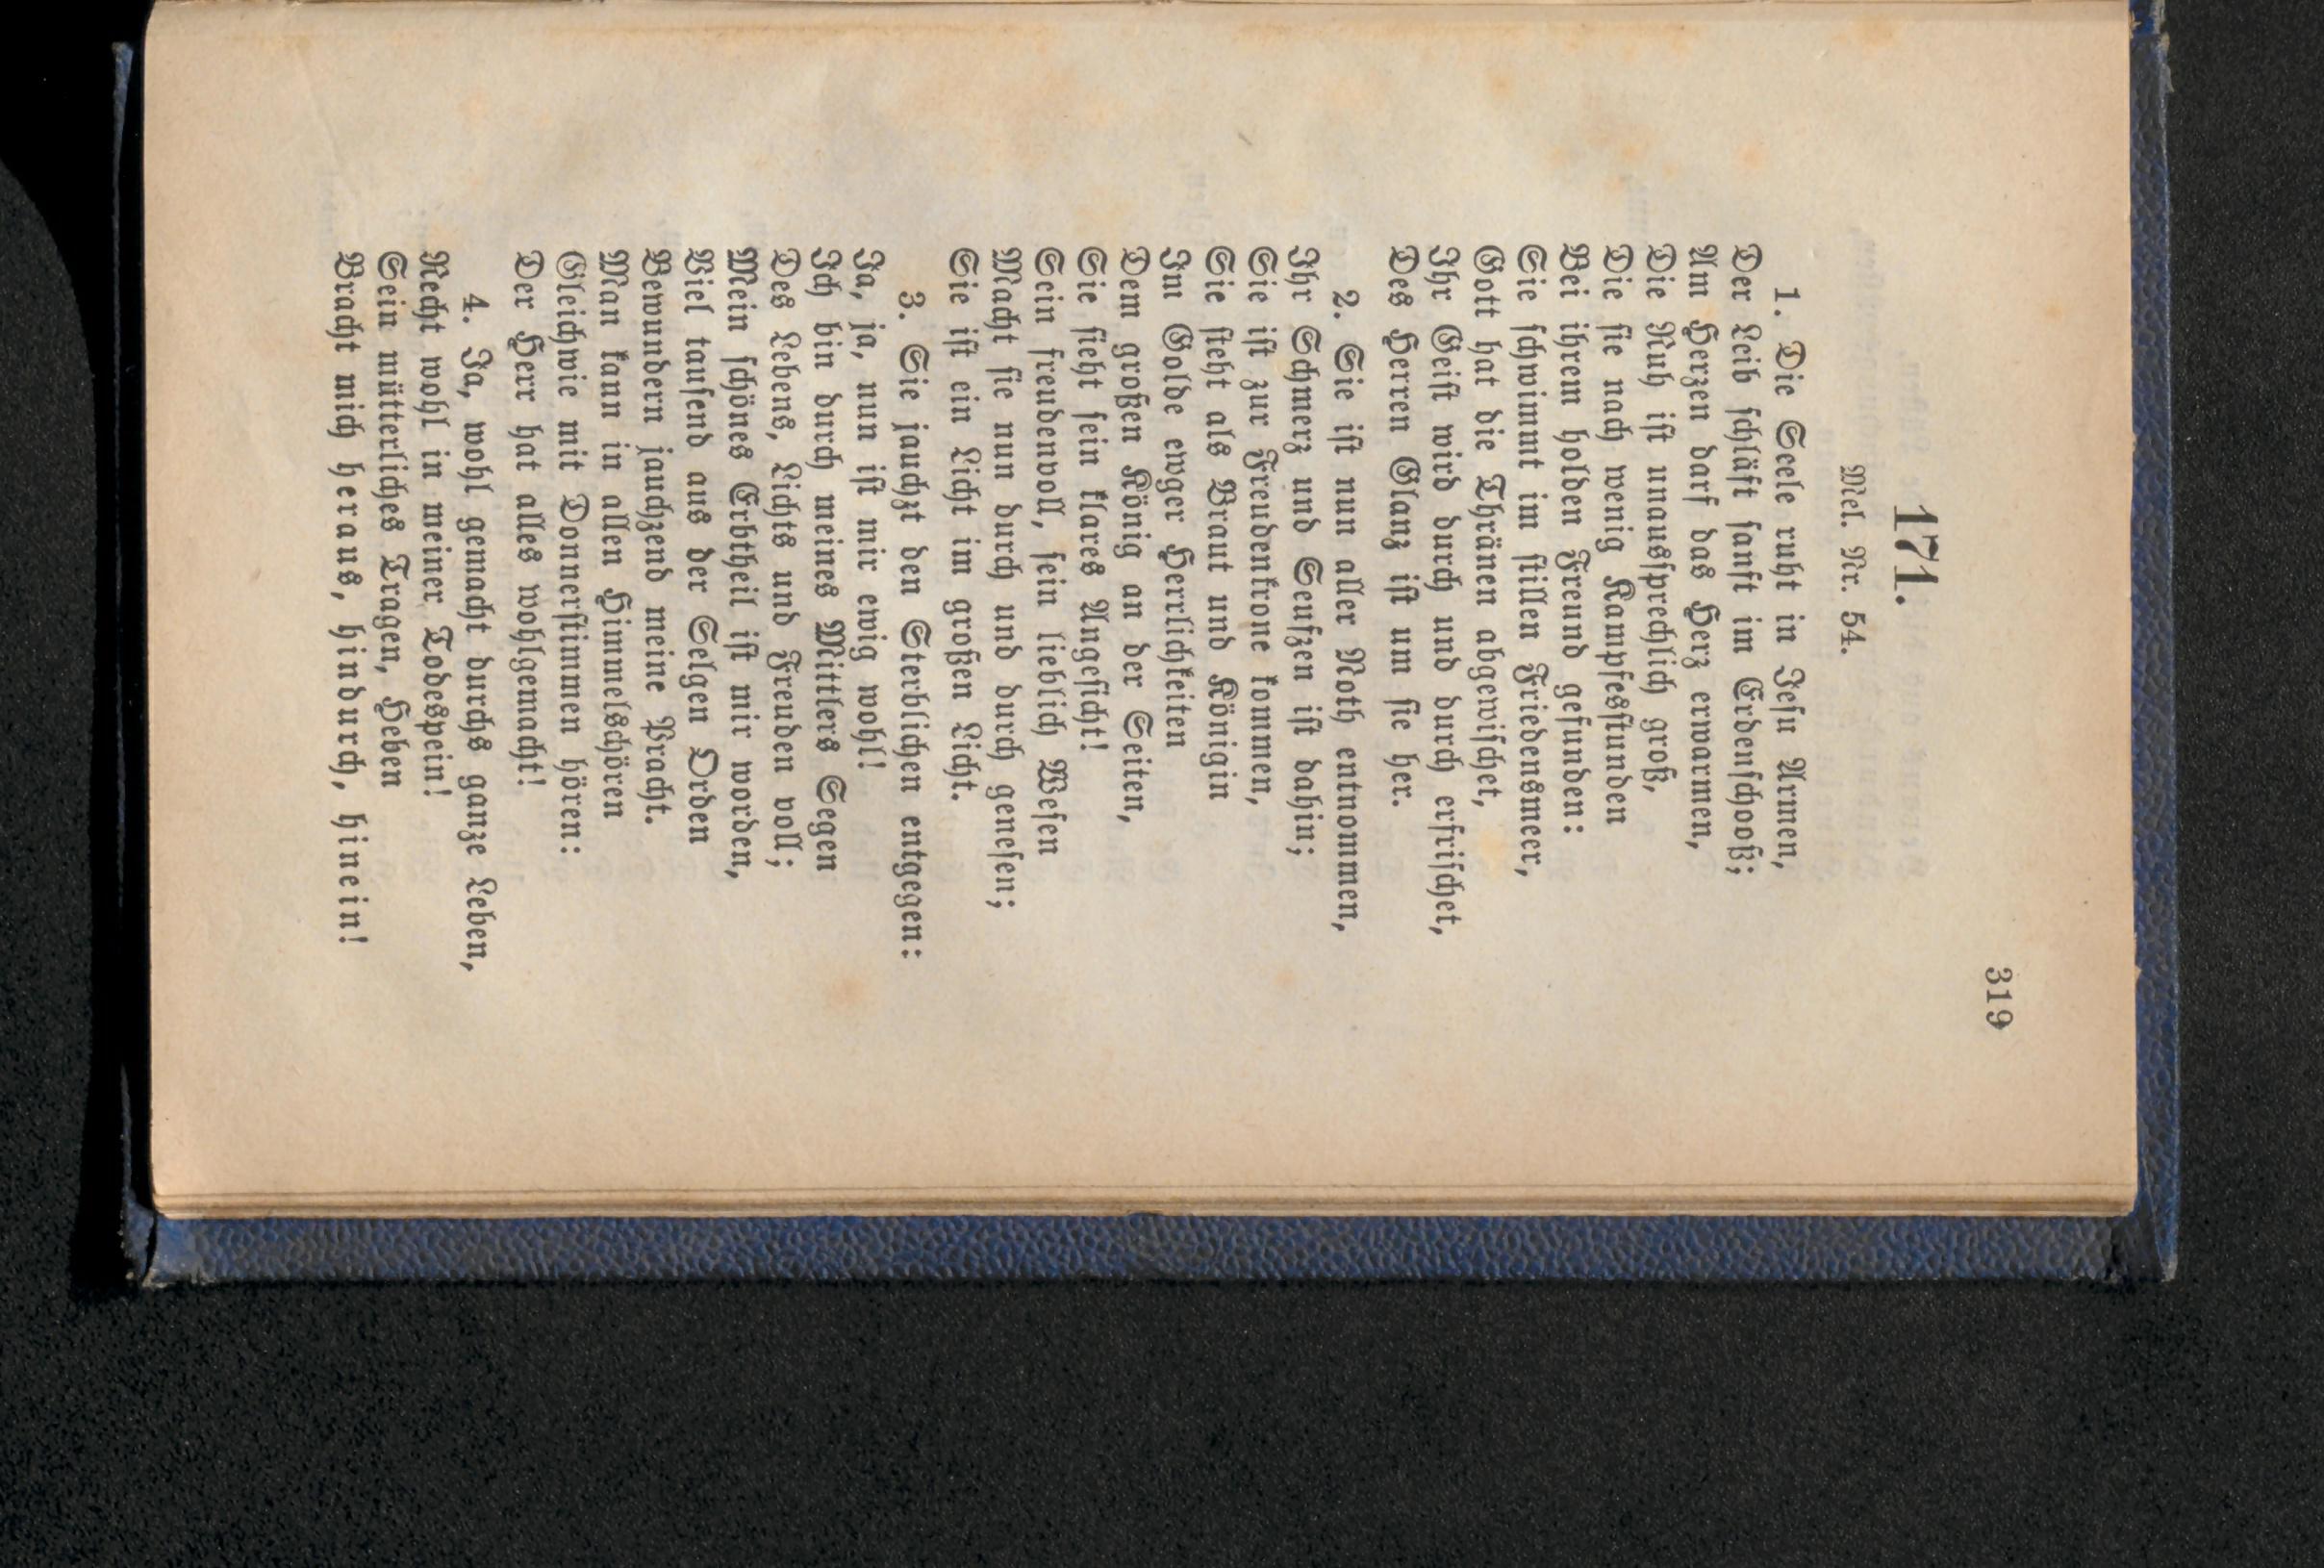 319
171.
Mel. Nr. 54.
1. Die Seele ruht in Jesu Armen,
Der Leib schläft sanft im Erdenschooß;
Am Herzen darf das Herz erwarmen,
Die Ruh ist unaussprechlich groß,
Die sie nach wenig Kampfesstunden
Bei ihrem holden Freund gefunden:
Sie schwimmt im stillen Friedensmeer,
Gott hat die Thränen abgewischet,
Ihr Geist wird durch und durch erfrischet,
Des Herren Glanz ist um sie her.
2. Sie ist nun aller Noth entnommen,
Ihr Schmerz und Seufzen ist dahin;
Sie ist zur Freudenkrone kommen,
Sie steht als Braut und Königin
Im Golde ewger Herrlichkeiten
Dem großen König an der Seiten,
Sie sieht sein klares Angesicht!
Sein freudenvoll, sein lieblich Wesen
Macht sie nun durch und durch genesen;
Sie ist ein Licht im großen Licht.
3. Sie jauchzt den Sterblichen entgegen:
Ja, ja, nun ist mir ewig wohl!
Ich bin durch meines Mittlers Segen
Des Lebens, Lichts und Freuden voll;
Mein schönes Erbtheil ist mir worden,
Viel tausend aus der Selgen Orden
Bewundern jauchzend meine Pracht.
Man kann in allen Himmelschören
Gleichwie mit Donnerstimmen hören:
Der Herr hat alles wohlgemacht!
4. Ja, wohl gemacht durchs ganze Leben,
Recht wohl in meiner Todespein!
Sein mütterliches Tragen, Heben
Bracht mich heraus, hindurch, hinein!